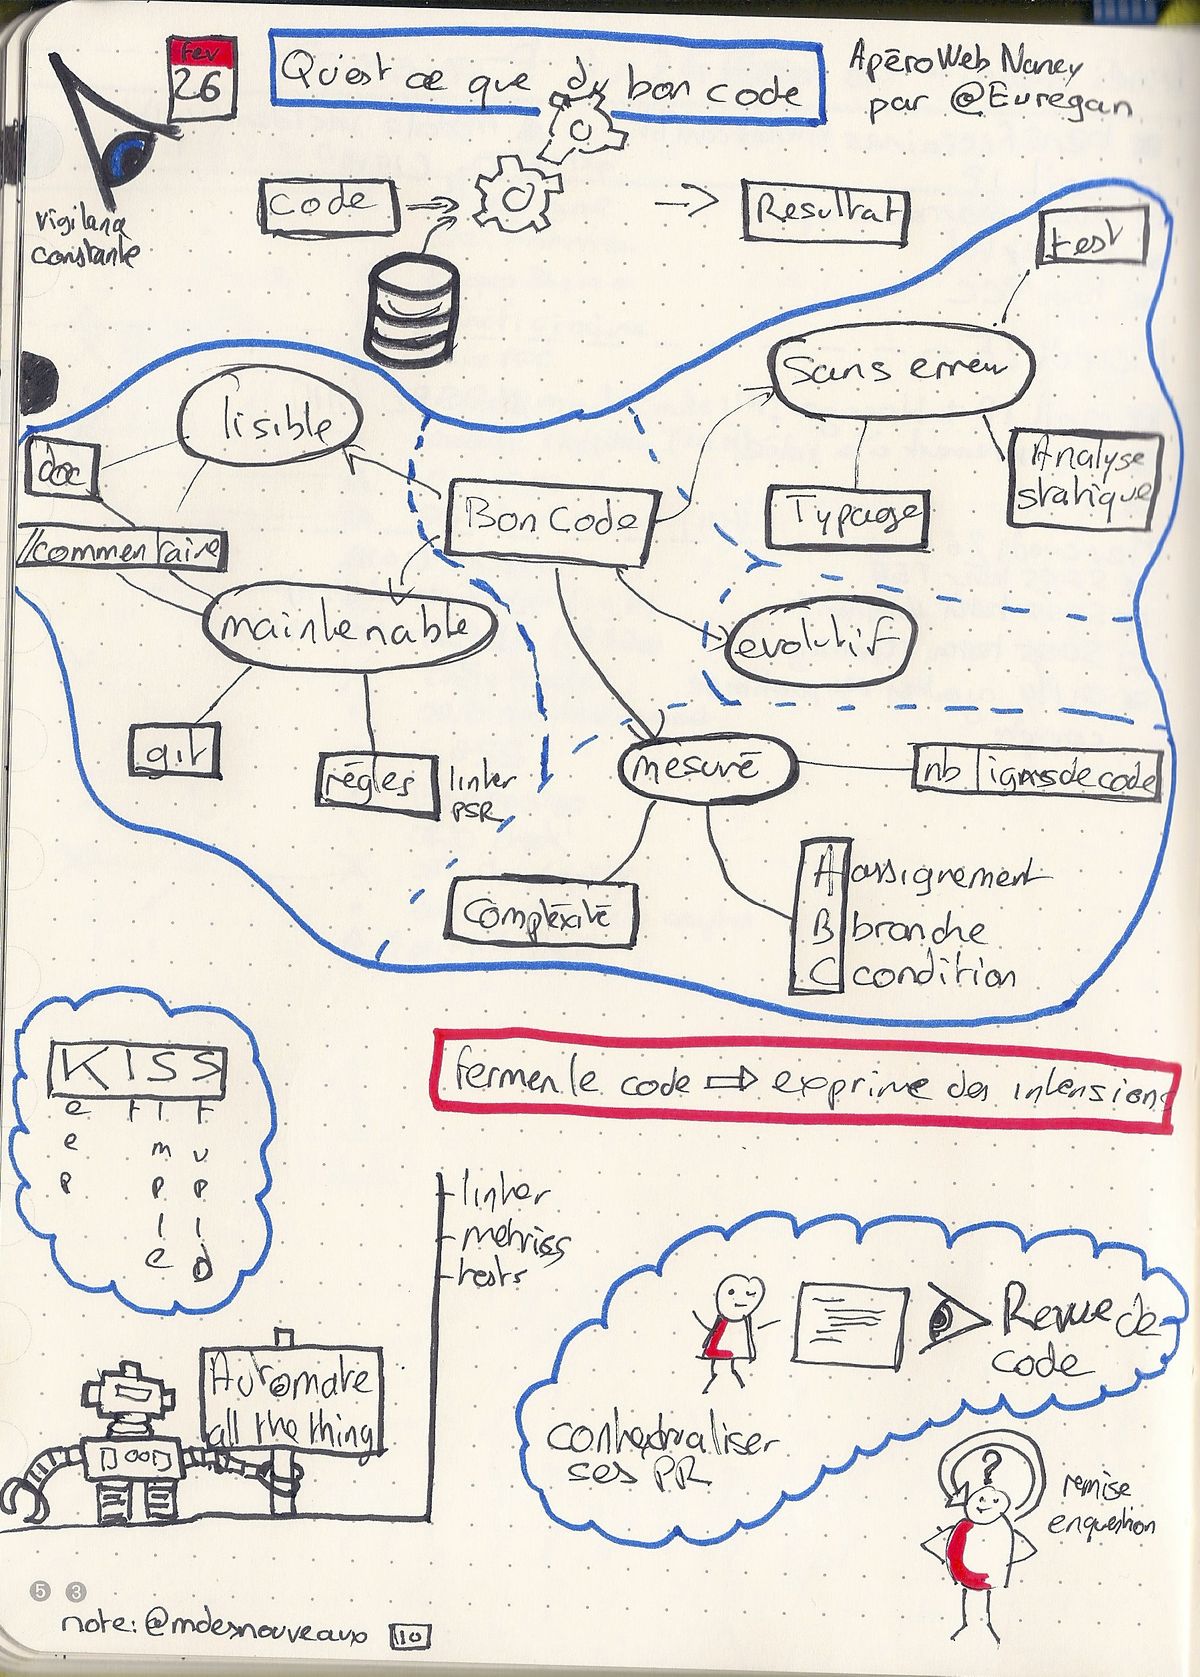 Fev
26
Qu'est ce que du bon code
Apéro Web Nancy
par @Euregan
vigilance
constante
code
Resultat
test
Sans erreur
lisible
doc
Analyse
statique
Bon Code
Typage
//commentaire
maintenable
evolutif
git
règles
linter
PSR
mesuré
nb lignes de code
Compléxité
A assignement
B branche
C condition
KISS
e t i t
e m u
p p p
l i
e d
fermente code ⇒ exprime des intensions
- linter
- métriss
- tests
Automate
all the thing
Revue de
code
contextualiser
ses PR
?
remise
en question
5 3
note: @mdesnouveaux 110